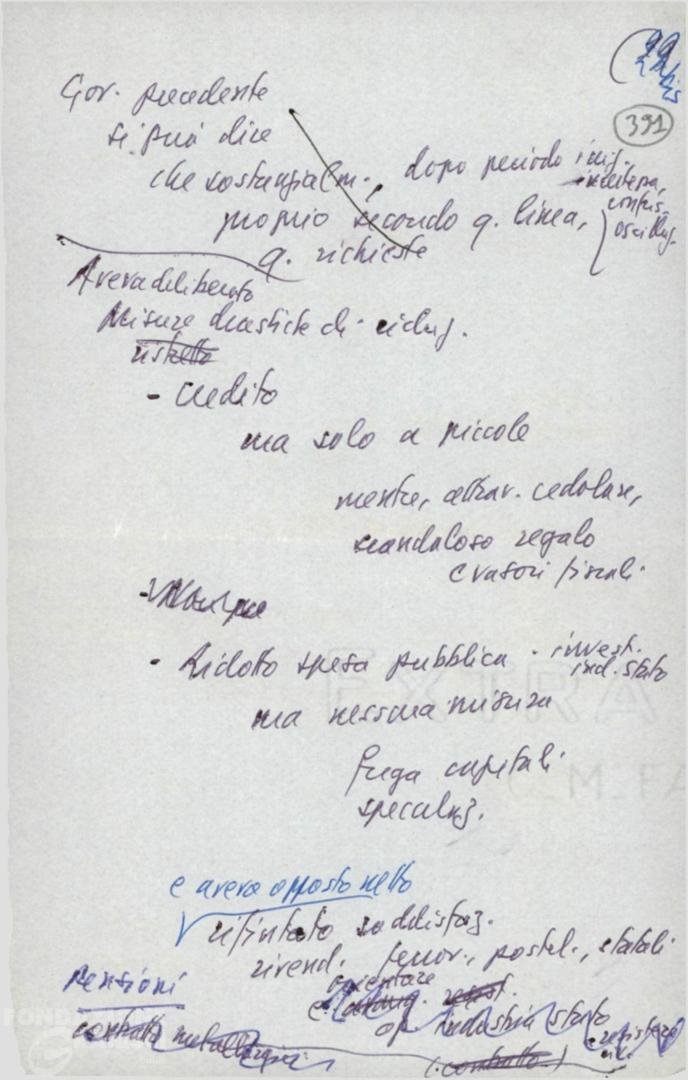 22 bis
391
Gov. precedente
si può dire
che sostanzialm., dopo periodo iniz.
incertezza,
confus.
oscillaz.
proprio secondo q. linea,
q. richieste
Aveva deliberato
Misure drastiche di riduz.
ristretto
- Credito
ma solo a piccole
mentre, attrav. cedolare,
scandaloso regalo
evasori fiscali
- Ridotto spesa pubblica - invest.
ind. stato
ma nessuna misura
fuga capitali
speculaz.
e aveva opposto netto
rifiutato soddisfaz.
rivend. ferrov., postel., statali
Pensioni
aumentare
op industria stato
contratto metallurgici
(contratto)
FONDAZIONE
EXTRA